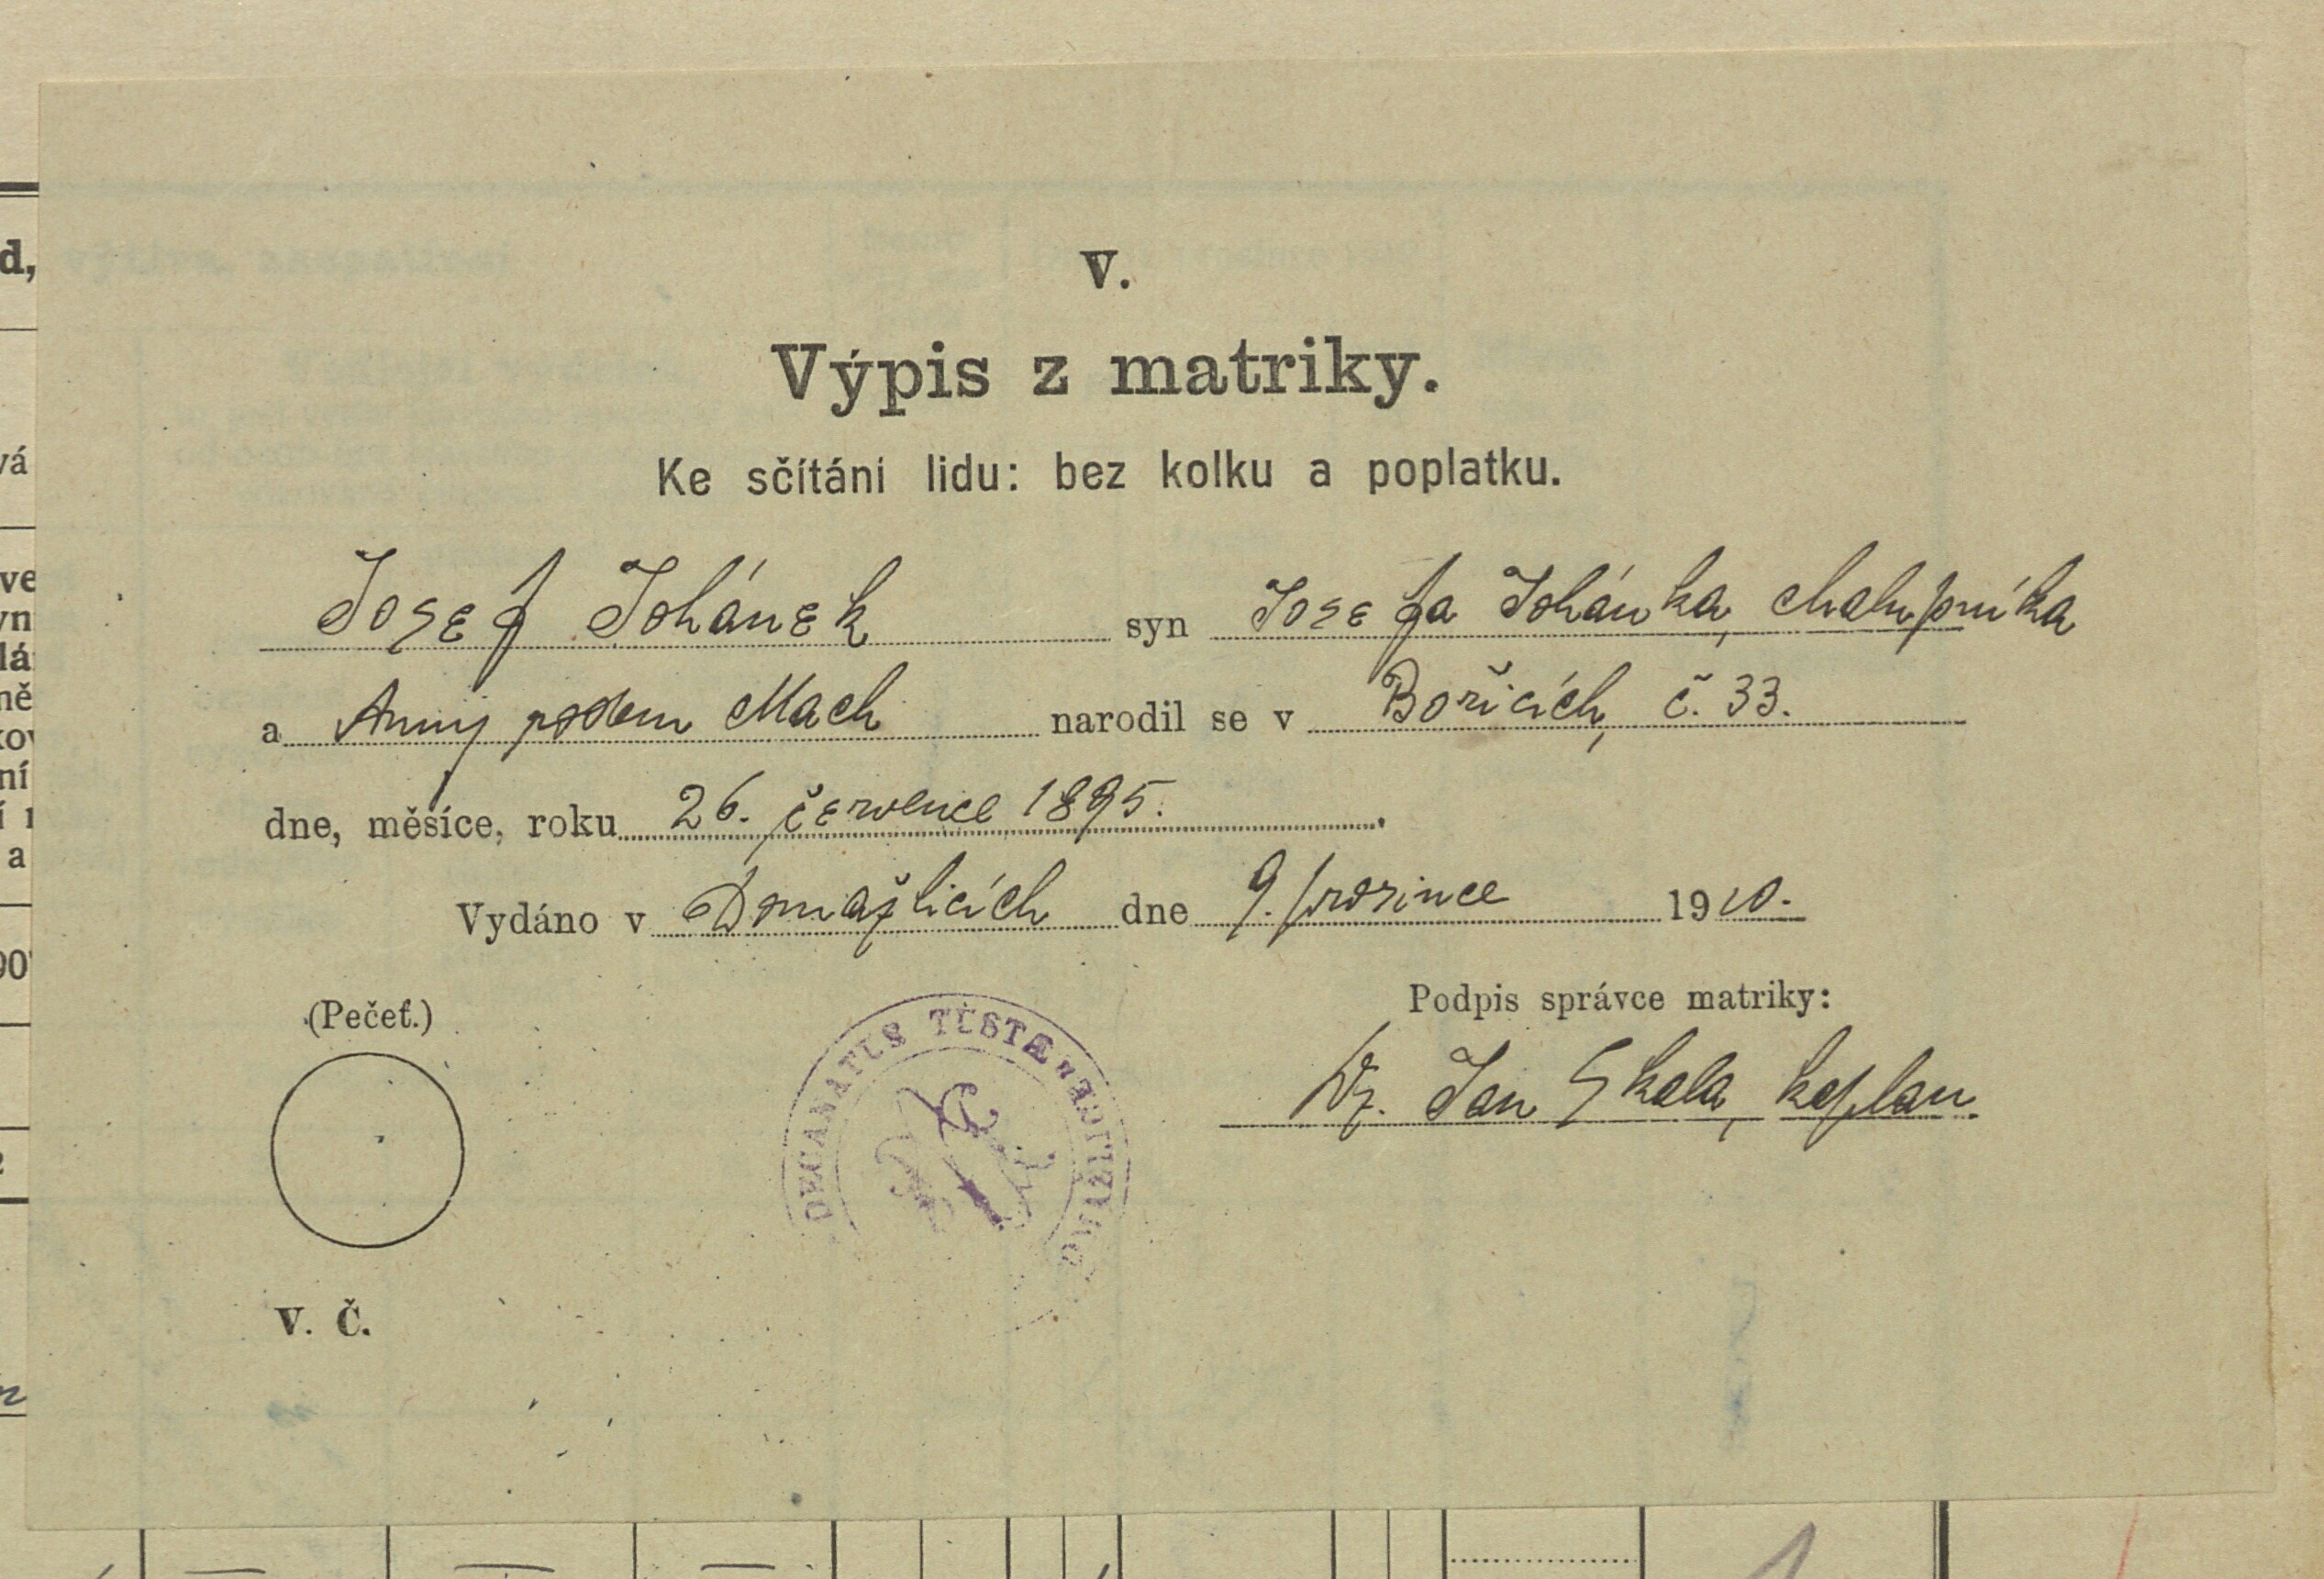 V.
Výpis z matriky.
Ke sčítání lidu: bez kolku a poplatku.
Josef Johánek syn Josefa Johánka, chalupníka
a Anny rodem Mach narodil se v Bořicích, č. 33.
dne, měsíce, roku 26. července 1895.
Vydáno v Domažlicích dne 9. prosince 1910.
(Pečeť.)
DECANATUS
Podpis správce matriky:
Jan Skala, kaplan.
V. Č.